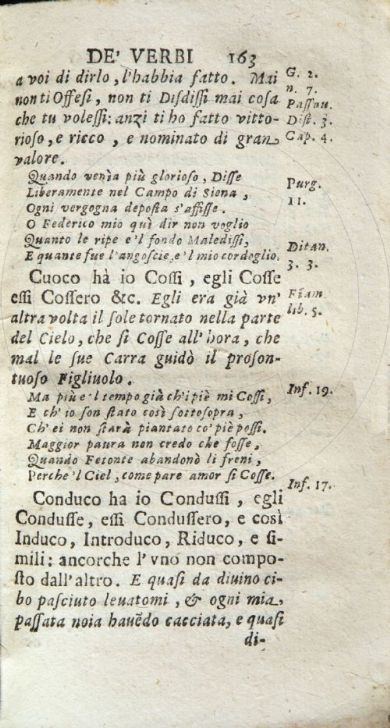 DE' VERBI 163
a voi di dirlo, l'habbia fatto. Mai
non ti Offesi, non ti Disdissi mai cosa
che tu volessi: anzi ti ho fatto vitto-
rioso, e ricco, e nominato di gran
valore.
G. 2.
n. 7.
Passau.
Dist. 3.
Cap. 4.
Quando venìa più glorioso, Disse
Liberamente nel Campo di Siona,
Ogni vergogna deposta s'affisse.
Purg.
11.
O Federico mio quì dir non voglio
Quanto le ripe e'l fondo Maledissi,
E quante fue l'angoscie, e'l mio cordoglio.
Ditan.
3. 3.
Cuoco hà io Cossi, egli Cosse
essi Cossero &c. Egli era già vn'
altra volta il sole tornato nella parte
del Cielo, che si Cosse all'hora, che
mal le sue Carra guidò il proson-
tuoso Figliuolo.
Fiam.
lib. 5.
Ma più e'l tempo già ch'i piè mi Cossi,
E ch'io son stato così sottosopra,
Ch'ei non starà piantato co' piè rossi.
Inf. 19.
Maggior paura non credo che fosse,
Quando Fetonte abandonò li freni,
Perche'l Ciel, come pare amor si Cosse.
Inf. 17.
Conduco ha io Condussi, egli
Condusse, essi Condussero, e così
Induco, Introduco, Riduco, e si-
mili: ancorche l'vno non compo-
sto dall'altro. E quasi da diuino ci-
bo pasciuto leuatomi, & ogni mia
passata noia hauēdo cacciata, e quasi
di-